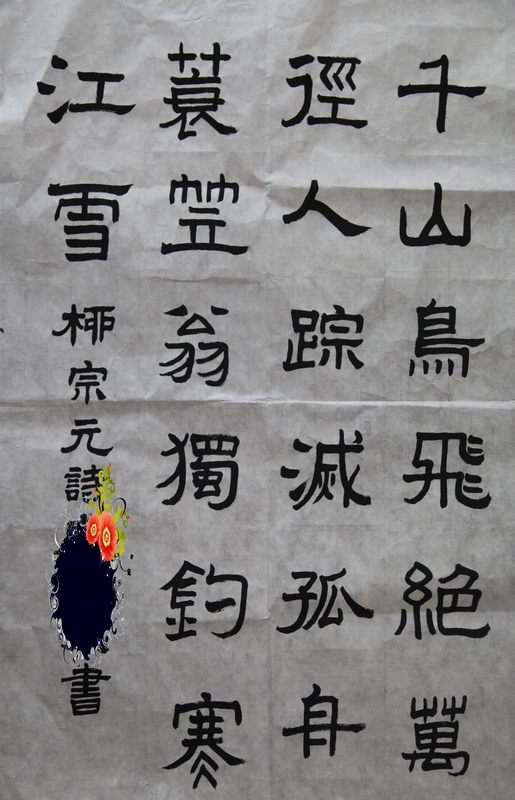 千山鳥飛絶萬
徑人踪滅孤舟
蓑笠翁獨釣寒
江雪
柳宗元詩
書